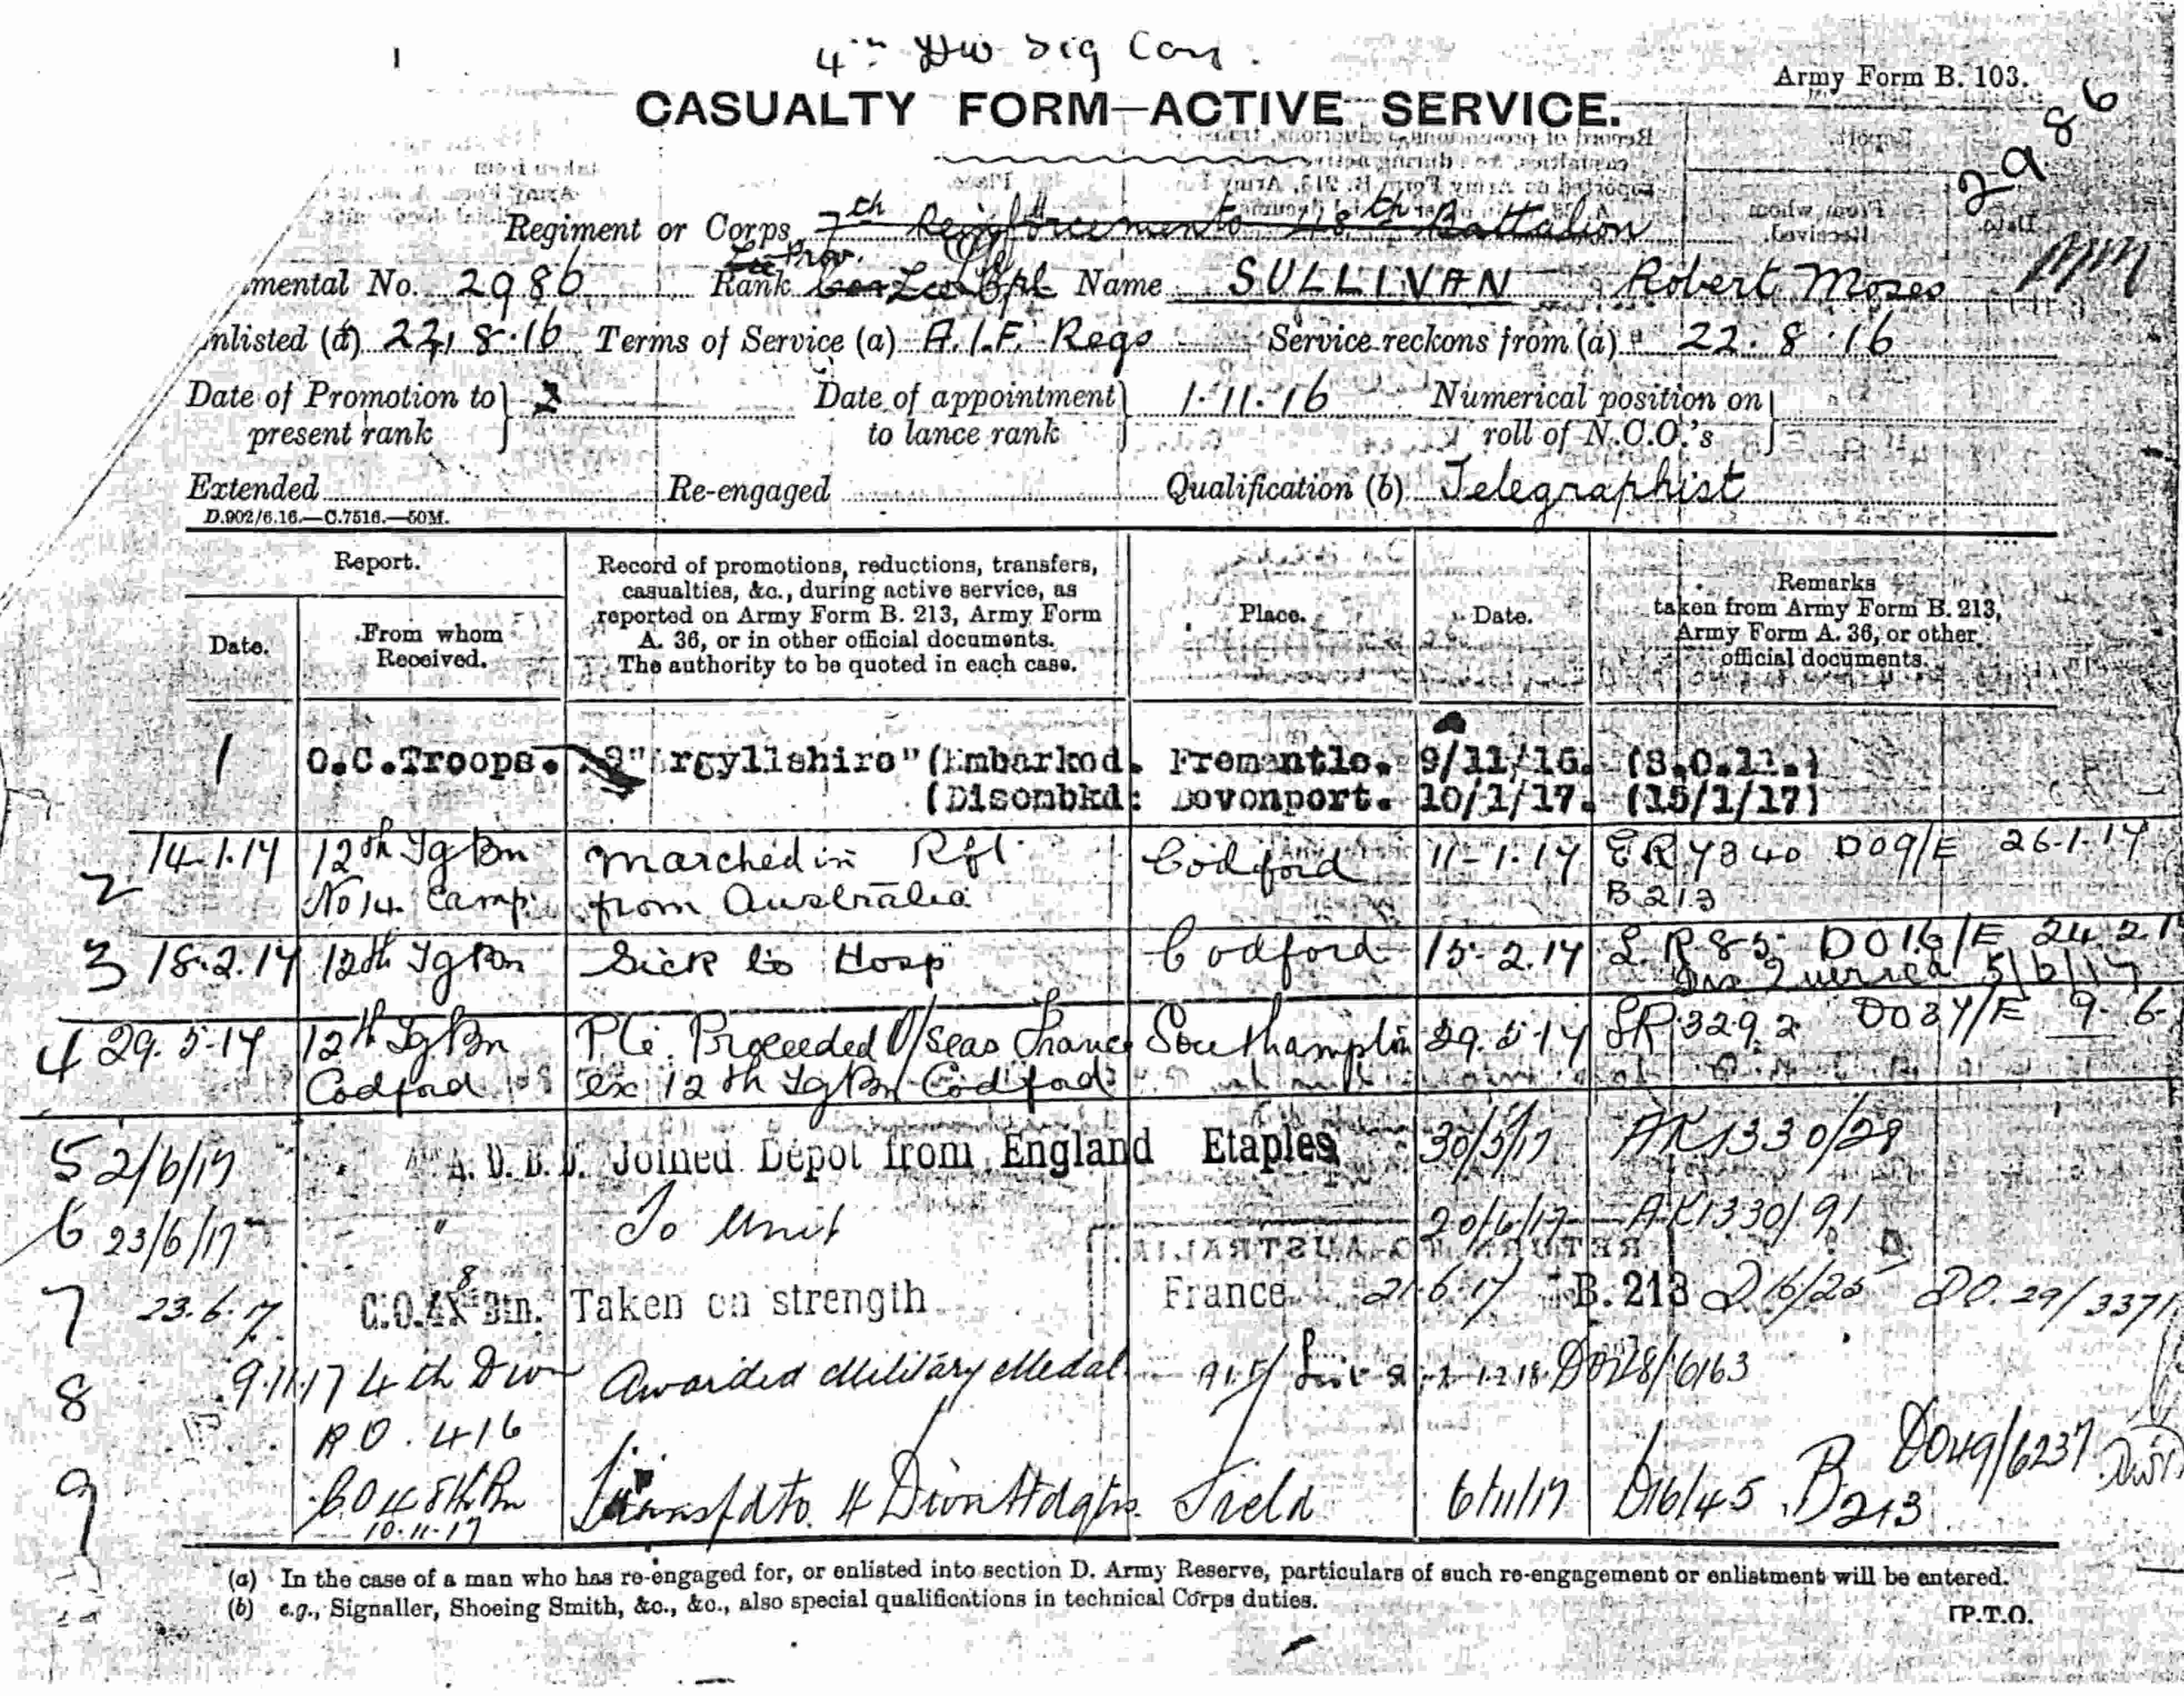 1
4th Div Sig Coy.
Army Form B. 103.
CASUALTY FORM—ACTIVE SERVICE.
2986
Regiment or Corps 7th Reinforcements 48th Battalion
mental No. 2986 Rank Cpl Name SULLIVAN Robert Moses
MM
nlisted (a) 22.8.16 Terms of Service (a) A.I.F. Regs Service reckons from (a) 22.8.16
Date of Promotion to present rank
Date of appointment to lance rank 1.11.16
Numerical position on roll of N.C.O.'s
Extended Re-engaged Qualification (b) Telegraphist
D.902/6.16.—C.7516.—50M.
Report.
Date.
From whom Received.
Record of promotions, reductions, transfers,
casualties, &c., during active service, as
reported on Army Form B. 213, Army Form
A. 36, or in other official documents.
The authority to be quoted in each case.
Place.
Date.
Remarks
taken from Army Form B. 213,
Army Form A. 36, or other
official documents.
1 O.C.Troops. "Argyllshire" (Embarked. Fremantle. 9/11/16. (S.O.11.)
(Disembkd: Devonport. 10/1/17. (15/1/17)
2 14.1.17 12th Tg Bn marched in Rft Codford 11-1-17 ER 7340 DO9/E 26-1-17
No 14 Camp from Australia B213
3 18.2.17 12th Tg Bn Sick to Hosp Codford 15-2.17 DO16/E 24 2 1
4 29.5.17 12th Tg Bn Pte. Proceeded O/seas France Southampton 29.5.17 SR 3292 DO37/E 9.6.
Codford ex 12th Tg Bn Codford
5 2/6/17 A.D.B.D. Joined Depot from England Etaples 30/5/17 AK1330/29
6 23/6/17 " To Unit 20/6/17 AK1330/91
RETURN TO AUSTRALIA
7 23.6.17 C.O.48 Btn. Taken on strength France 21.6.17 B.213 D16/25 DO.29/3371
8 9.11.17 4th Divn Awarded Military Medal
R.O. 416
9 C.O 48th Bn Transfd to 4 Divn Hdqtrs. Field 6/11/17 D16/45 B213 DO49/6237
10.11.17
(a) In the case of a man who has re-engaged for, or enlisted into section D. Army Reserve, particulars of such re-engagement or enlistment will be entered.
(b) e.g., Signaller, Shoeing Smith, &c., &c., also special qualifications in technical Corps duties.
[P.T.O.